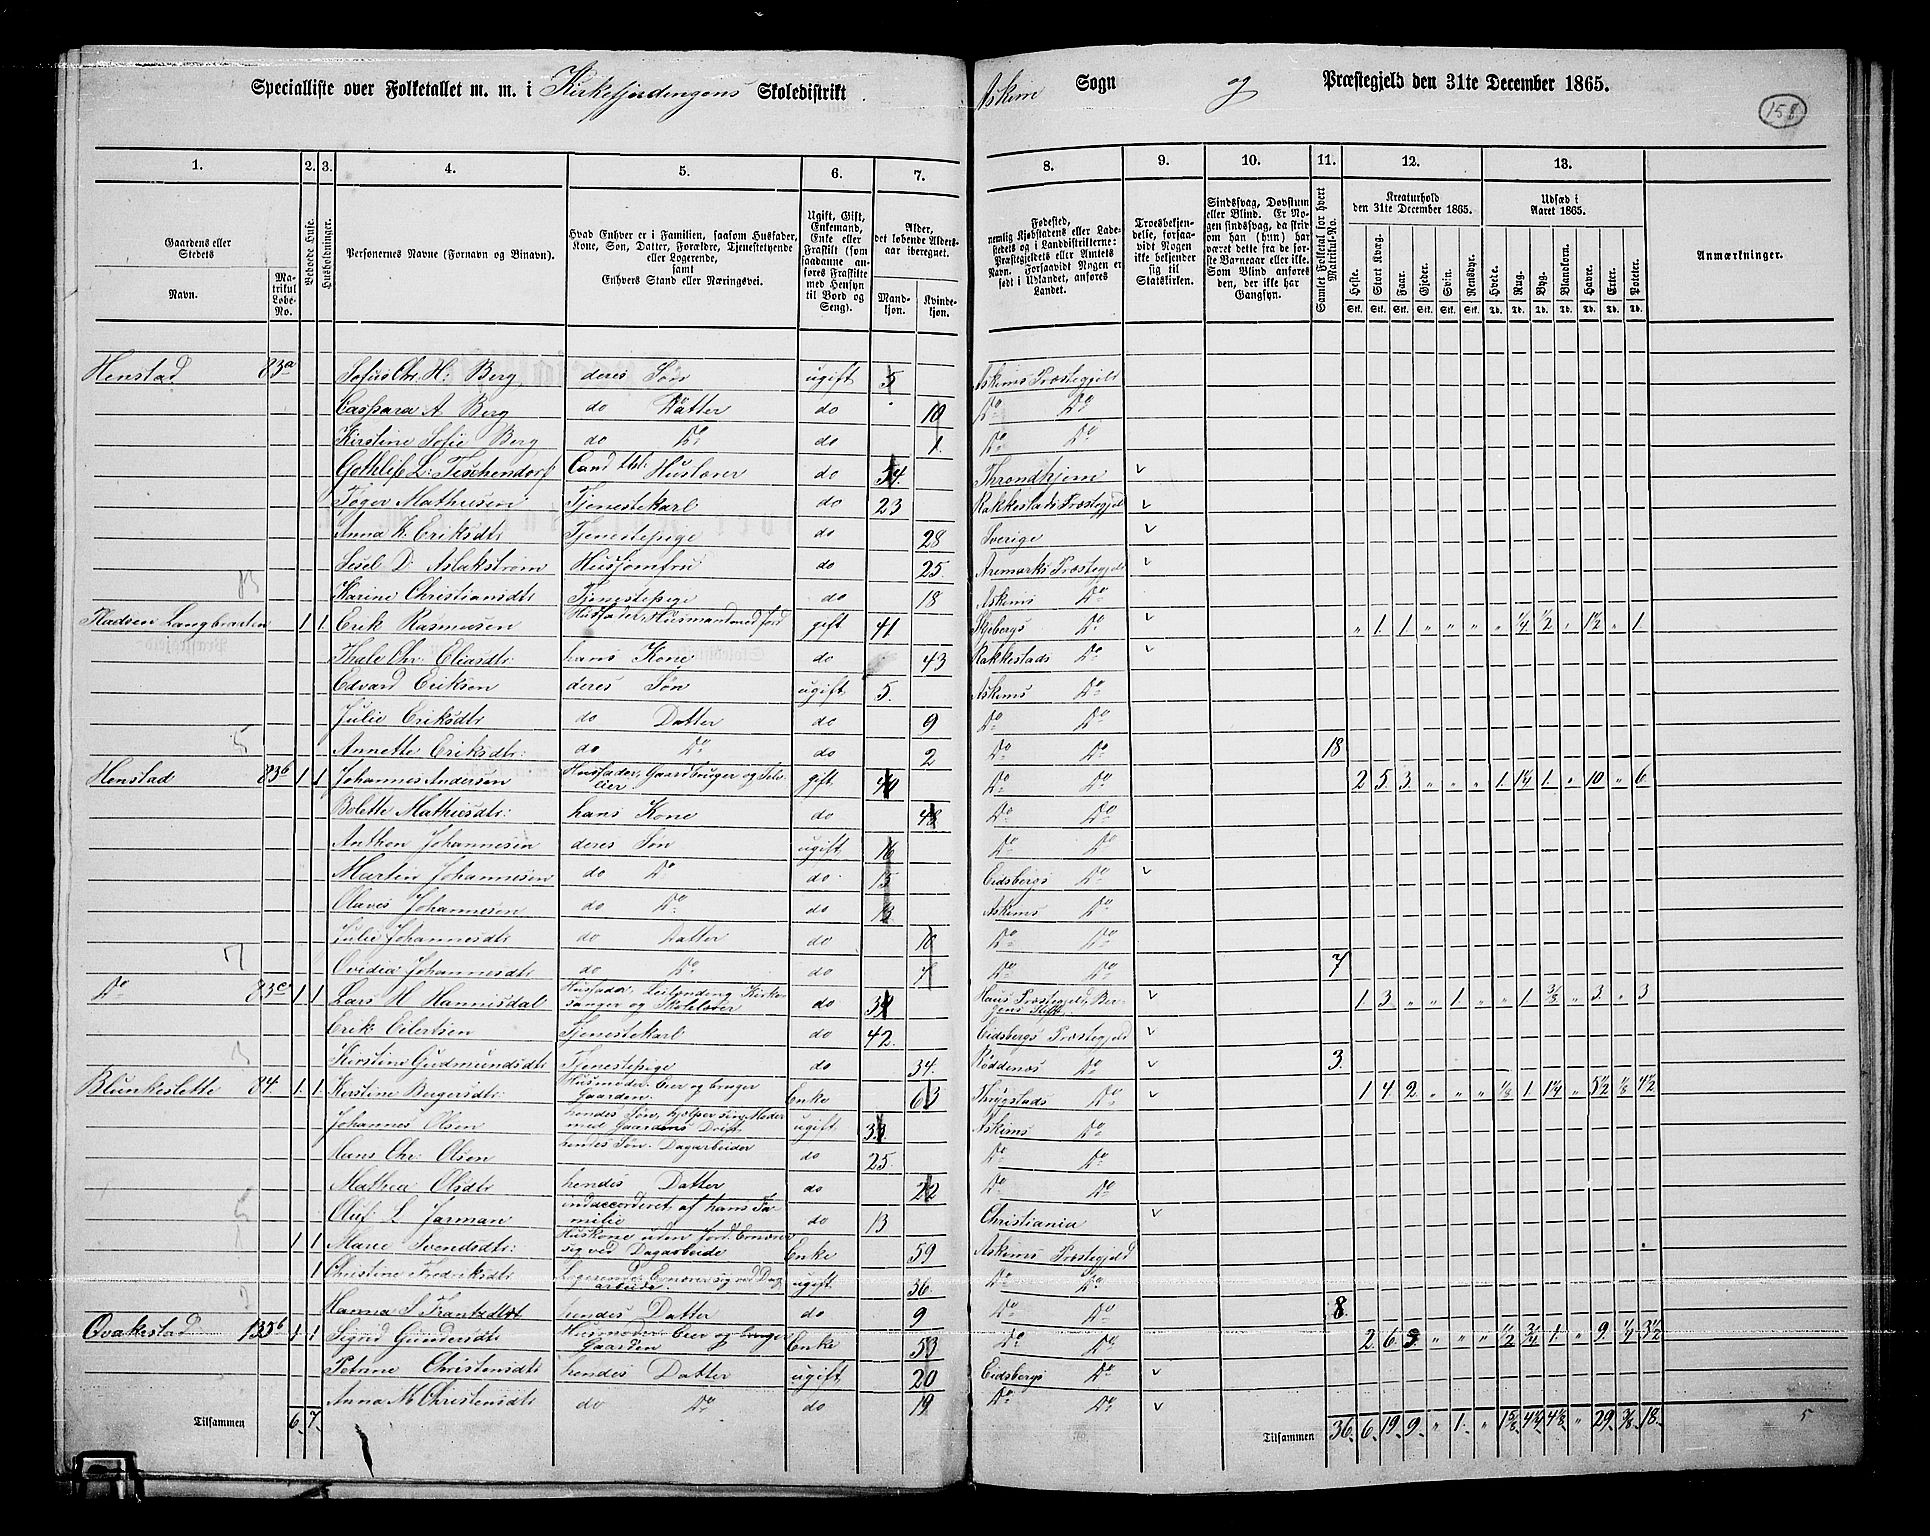 Specialliste over Folketallet m. m. i Kirkefjerdengens Skoledistrikt
Askim Sogn og Præstegjeld den 31te December 1865.
158
1. 2. 3. 4. 5. 6. 7. 8. 9. 10. 11. 12. 13.
Gaardens eller Stedets Navn.
Matrikul Løbe-No.
Beboede Huse.
Husholdninger.
Personernes Navne (Fornavn og Binavn).
Hvad Enhver er i Familien, saasom Husfader, Kone, Søn, Datter, Forældre, Tjenestetyende eller Logerende, samt Enhvers Stand eller Næringsvei.
Ugift, Gift, Enkemand, Enke eller Fraskilt (som saadanne anføres Fraskilte med Hensyn til Bord og Seng).
Alder, det løbende Aldersaar iberegnet.
Mandkjøn. Kvindekjøn.
Fødested, nemlig Kjøbstadens eller Ladestedets og i Landdistrikterne: Præstegjeldets eller Amtets Navn. Forsaavidt Nogen er født i Udlandet, anføres Landet.
Troesbekjendelse, forsaavidt Nogen ikke bekjender sig til Statskirken.
Sindssvag, Døvstum eller Blind. Er Nogen sindssvag, da skrives om han (hun) har været dette fra de første Barneaar eller ikke. Som Blind anføres den, der ikke har Gangsyn.
Samlet Folketal for hvert Matrikul-No.
Kreaturhold den 31te December 1865.
Heste. Stort Kvæg. Faar. Gjeder. Svin. Rensdyr.
Udsæd i Aaret 1865.
Hvete. Rug. Byg. Blandkorn. Havre. Erter. Poteter.
Anmærkninger.
Henstad 83a Sofus Chr. H. Berg deres Søn ugift 5 Askims Præstegjeld
Caspara A. Berg do Datter do 10 Do Do
Kirstine Sofie Berg do Do do 1 Do Do
Gothlif L. Tischendorf Cand. thl. Huslærer do 54 Throndhjem
Tøger Mathiesen Tjenestekarl do 23 Rakkestads Præstegjeld
Anna K. Eriksdtr Tjenestepige do 28 Sverige
Sisel D. Aslakstrøm Husjomfru do 25 Aremarks Præstegjeld
83 Karine Christiansdtr Tjenestepige do 18 Askims Do
Langbraaten 1 1 Erik Rasmusen Husfader, Husmand med Jord gift 41 Skjebergs Do " 1 1 " " " " 1/4 1/2 " 1 1/2 " 1
Thale Chr. Eliasdtr hans Kone do 43 Rakkestads Do
Edvard Eriksen deres Søn ugift 5 Askims Do
Julie Eriksdtr do Datter do 9 Do Do
5 Annette Eriksdtr do Do do 2 Do Do 18
Henstad 83b 1 1 Johannes Andersen Husfader, Gaardbruger og Selveier gift 40 Do Do 2 5 3 " " " 1 1/4 1 " 10 " 6
Bolette Mathisdtr hans Kone do 48 Do Do
Anthon Johannesen deres Søn ugift 16 Do Do
Martin Johannesen do Do do 15 Eidsbergs Do
Olaves Johannesen do Do do 13 Askims Do
Julie Johannesdtr do Datter do 10 Do Do
7 Ovedia Johannesdtr do Do do 4 Do Do 7
Do 83c 1 1 Lars H Hannisdal Husfader, Leilending Kirkesanger og Skolelærer do 34 Haus Præstegjeld, Bergens Stift 1 3 " " 1 " " 1 3/8 " 3 " 3
Erik Eilertsen Tjenestekarl do 42 Eidsbergs Præstegjeld
3 Kirstine Gudmundsdtr Tjenestepige do 34 Røddenæs Do 3
Blunkeslette 84 1 1 Kerstine Birgersdtr Husmoder, Eier og bruger Gaarden Enke 63 Thrygstads Do 1 4 2 " " " 1/8 1 1 1/4 " 5 1/2 1/8 4 1/2
Johannes Olsen hendes Søn, hjelper sin Moder med Gaardens Drift ugift 33 Askims Do
Hans Chr. Olsen hendes Søn. Dagarbeider do 25 Do Do
Mathea Olsdtr hendes Datter do 22 Do Do
5 Oluf L. Jarman indaccorderet af hans Familie do 13 Christiania
1 1 Marie Svendsdtr Huskone uden Jord. Ernærer sig ved Dagarbeide Enke 59 Askims Præstegjeld
1 Christine Fredriksdtr Logerende. Ernærer sig ved Dagarbeide ugift 36 Do Do
2 Hanna S. Frantzdatt hendes Datter do 9 Do Do 8
Ovakestad 135b 1 1 Sigrid Gundersdtr Husmoder Eier og bruger Gaarden Enke 53 Do Do 2 6 3 " " " 1/2 3/4 1 " 9 1/4 3 1/2
Petrine Christensdtr hendes Datter ugift 20 Eidsbergs Do
Anna M. Christensdtr do Do do 19 Do Do
Tilsammen 6 7
Tilsammen 36 6 19 9 " 1 " 1 5/8 4 3/4 4 1/8 " 29 3/8 18
5